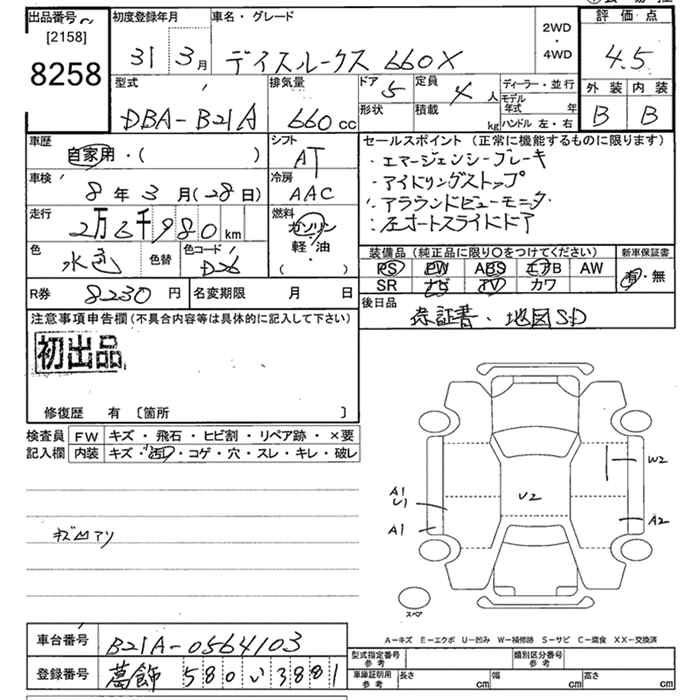 出品番号
[2158]
8258
初度登録年月
31 3月
車名・グレード
デイズルークス 660X
2WD
・
4WD
評価点
4.5
外装 内装
B B
型式
DBA-B21A
排気量
660cc
ドア 5
形状
定員 4人
積載 kg
ディーラー・並行
モデル年式 年
ハンドル 左・右
車歴
自家用・( )
シフト
AT
車検
8年3月(28日)
冷房
AAC
走行
2万6千980km
燃料
ガソリン
軽・油
( )
色
水色
色替
色コード
D26
R券 8230円
名変期限 月 日
セールスポイント (正常に機能するものに限ります)
・エマージェンシーブレーキ
・アイドリングストップ
・アラウンドビューモニタ
・左オートスライドドア
装備品 (純正品に限り〇をつけてください)
PS PW ABS エアB AW
SR ナビ TV カワ
新車保証書
有・無
後日品
保証書・地図SD
注意事項申告欄 (不具合内容等は具体的に記入して下さい)
初出品
修復歴 有 [箇所 ]
検査員記入欄
FW キズ・飛石・ヒビ割・リペア跡・×要
内装 キズ・汚・コゲ・穴・スレ・キレ・破レ
キズ凹アリ
W2
U2
A1
U1
A1
A2
スペア
A-キズ E-エクボ U-凹み W-補修跡 S-サビ C-腐食 XX-交換済
車台番号 B21A-0564103
登録番号 葛飾 580 い 3881
型式指定番号 参考
類別区分番号 参考
車庫証明用 参考
長さ cm
幅 cm
高さ cm